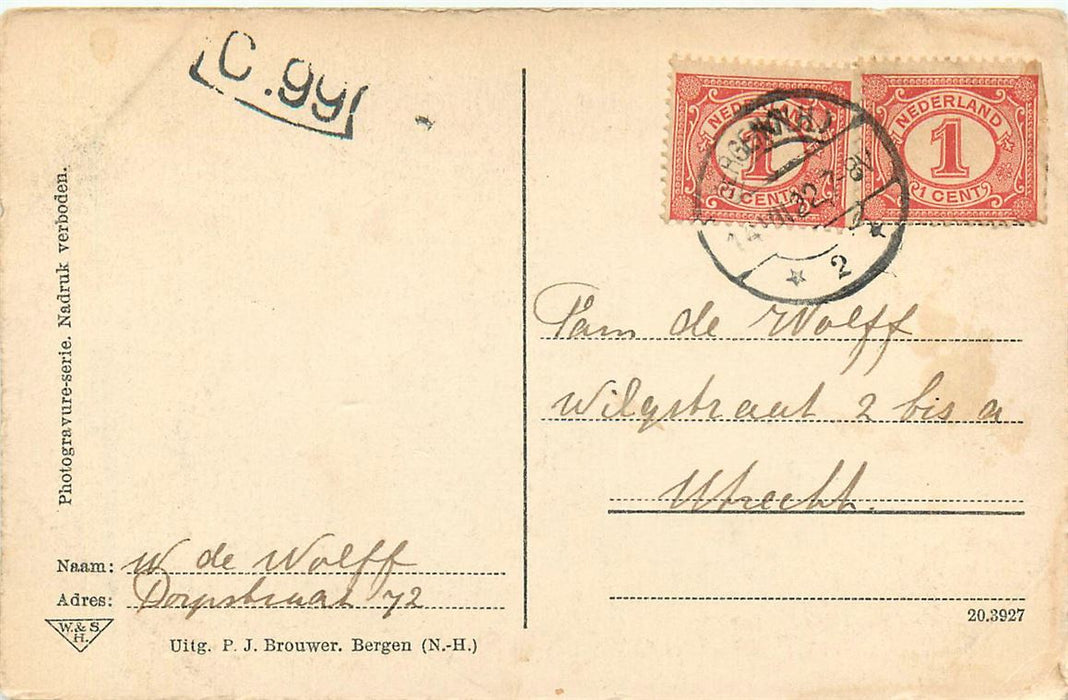 C.99
NEDERLAND
1
1 CENT
NEDERLAND
1
1 CENT
BERGEN (N.H.)
14 VII 22 7-8V
2
Fam de Wolff
Wilgstraat 2 bis a
Utrecht.
Photogravure-serie. Nadruk verboden.
Naam: W de Wolff
Adres: Dorpstraat 72
W. & S.
H.
Uitg. P. J. Brouwer. Bergen (N.-H.)
20.3927